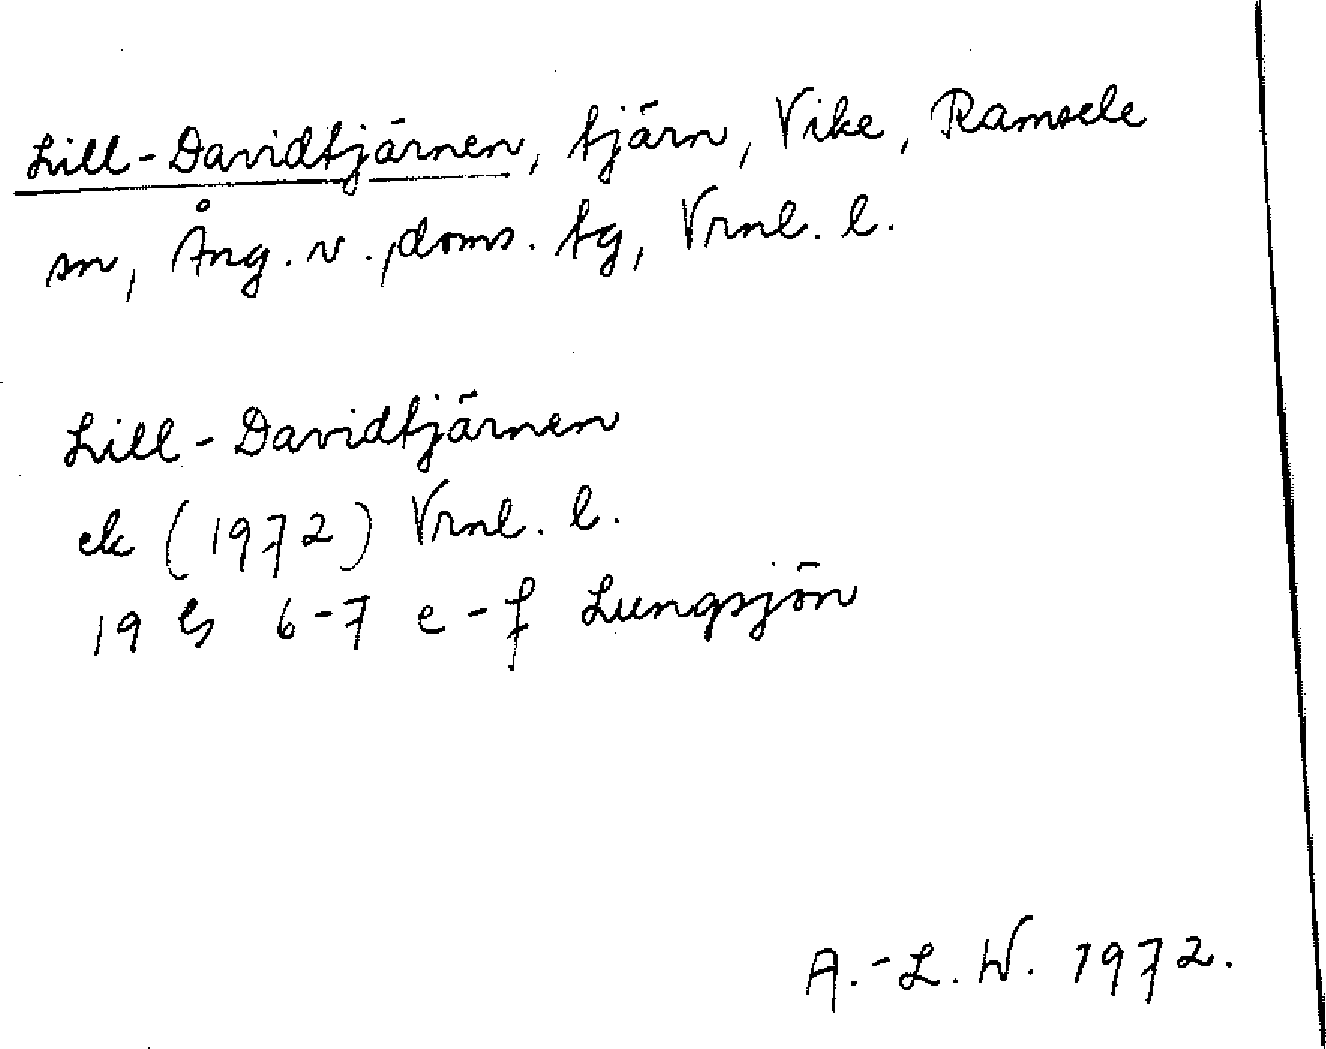 Lill-Davidtjärnen, tjärn, Vike, Ramsele
sn, Ång. v. doms. tg, Vrnl. l.
Lill-Davidtjärnen
ek (1972) Vrnl. l.
19 G 6-7 e-f Lungsjön
A.-L. W. 1972.